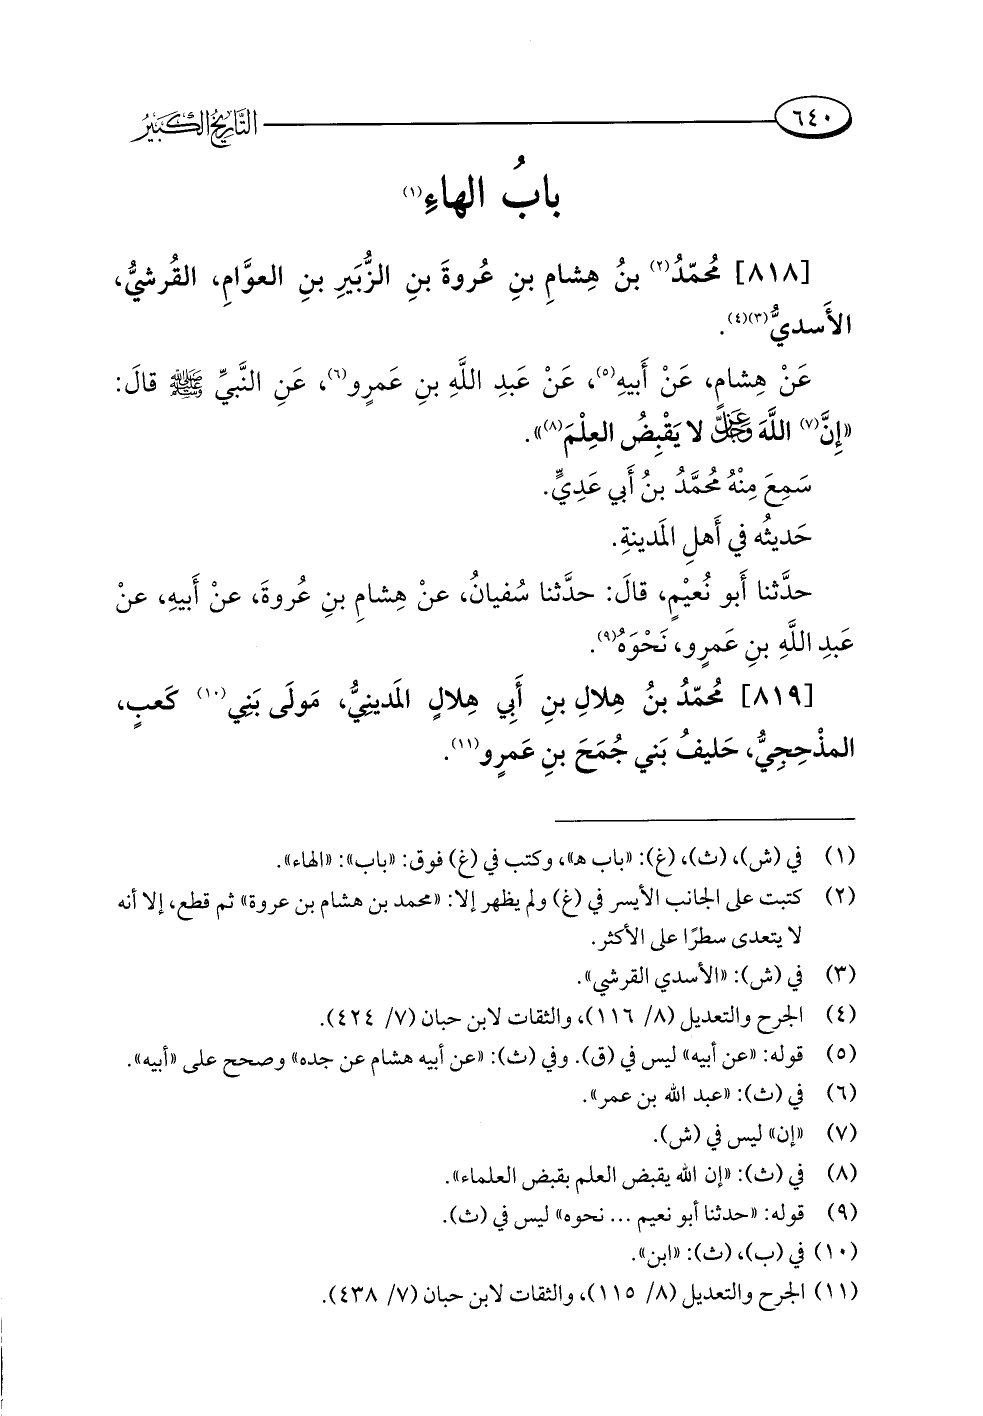 ٦٤٠ التَّارِيخُ الكَبِيرُ
بابُ الهاءِ(١)
[٨١٨] مُحمّدُ(٢) بنُ هِشامِ بنِ عُروةَ بنِ الزُّبَيرِ بنِ العوَّامِ، القُرشيُّ،
الأَسديُّ(٣)(٤).
عَنْ هِشامٍ، عَنْ أَبيهِ(٥)، عَنْ عَبدِ اللَّهِ بنِ عَمرٍو(٦)، عَنِ النَّبيِّ ﷺ قالَ:
«إِنَّ(٧) اللَّهَ عَزَّوَجَلَّ لا يَقْبِضُ العِلْمَ(٨)».
سَمِعَ مِنْهُ مُحمَّدُ بنُ أَبي عَديٍّ.
حَديثُه في أَهلِ المَدينةِ.
حدَّثنا أَبو نُعيْمٍ، قالَ: حدَّثنا سُفيانُ، عنْ هِشامِ بنِ عُروةَ، عنْ أَبيهِ، عنْ
عَبدِ اللَّهِ بنِ عَمرٍو، نَحْوَهُ(٩).
[٨١٩] مُحمّدُ بنُ هِلالِ بنِ أَبِي هِلالٍ المَدينِيُّ، مَولَى بَنِي(١٠) كَعبٍ،
المذْحِجِيُّ، حَليفُ بَني جُمَحَ بنِ عَمرٍو(١١).
(١) في (ش)، (ث)، (غ): «باب هـ»، وكتب في (غ) فوق: «باب»: «الهاء».
(٢) كتبت على الجانب الأيسر في (غ) ولم يظهر إلا: «محمد بن هشام بن عروة» ثم قطع، إلا أنه
لا يتعدى سطرًا على الأكثر.
(٣) في (ش): «الأسدي القرشي».
(٤) الجرح والتعديل (٨/ ١١٦)، والثقات لابن حبان (٧/ ٤٢٤).
(٥) قوله: «عن أبيه» ليس في (ق). وفي (ث): «عن أبيه هشام عن جده» وصحح على «أبيه».
(٦) في (ث): «عبد الله بن عمر».
(٧) «إن» ليس في (ش).
(٨) في (ث): «إن الله يقبض العلم بقبض العلماء».
(٩) قوله: «حدثنا أبو نعيم ... نحوه» ليس في (ث).
(١٠) في (ب)، (ث): «ابن».
(١١) الجرح والتعديل (٨/ ١١٥)، والثقات لابن حبان (٧/ ٤٣٨).